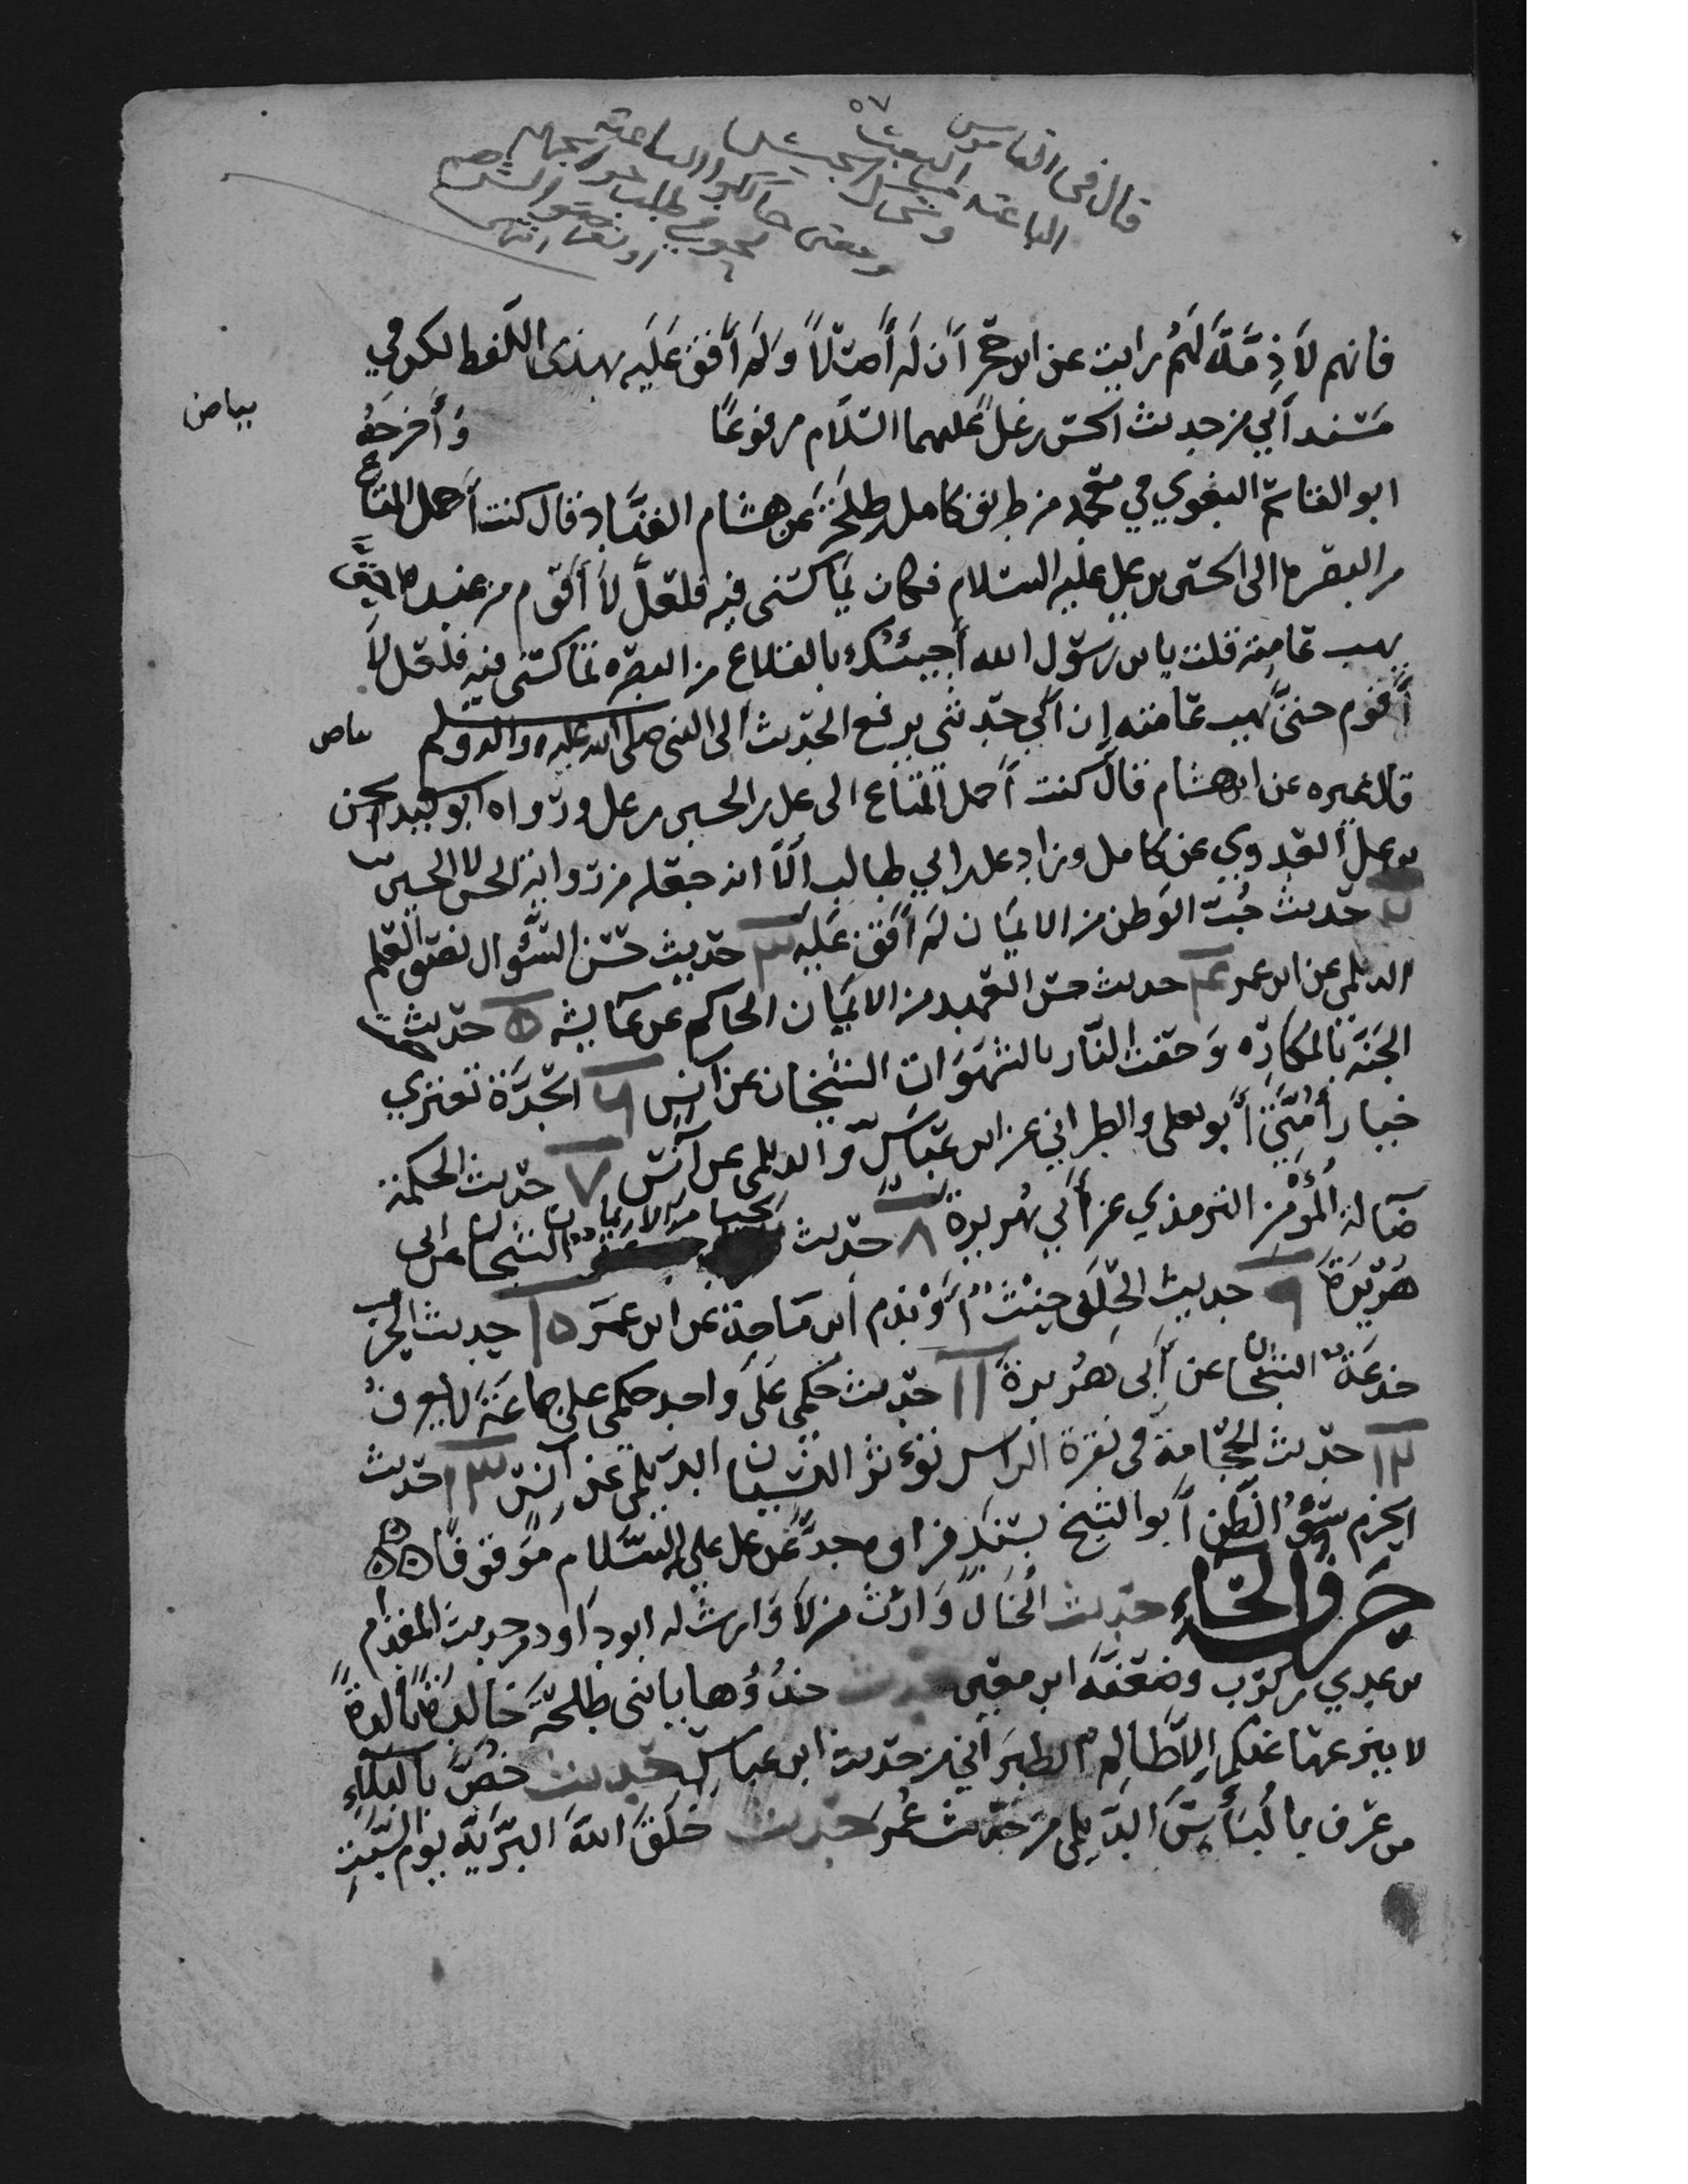 ٥٧
قال في القاموس
فانهم لا ذمة لهم رايت عن ابن حجر ان له أصلا ولم أقف عليه بهذى اللفظ لكن في
بياض
مسند أبي من حديث الحسن بن علي عليهما السلام مرفوعا وأخرجه
ابو القاسم البغوي في معجمه من طريق كامل بن طلحة عن هشام القناد قال كنت أحمل المتاع
من البصرة الى الحسين بن علي عليه السلام فكان يماكسنى فيه فلعل لا أقوم من عنده حتى
يهب عامته قلت يابن رسول الله أجيئك بالمتاع من البصره تماكسنى فيه فلعل لا
أقوم حتى تهب عامته إن أبي حدثني يرفع الحديث الى النبي صلى الله عليه واله وسلم بياض
قال غيره عن ابن هشام قال كنت أحمل المتاع الى علي بن الحسين بن علي ورواه ابو سعيد الحسن
بن علي العدوي عن كامل وزاد علي بن ابي طالب الا انه جعله من رواية الحسن لا الحسين
٢ حديث حب الوطن من الايمان لم أقف عليه ٣ حديث حسن السؤال نصف العلم
الديلمي عن ابن عمر ٤ حديث حسن العهد من الايمان الحاكم عن عايشه ٥ حديث حفت
الجنة بالمكاره وحفت النار بالشهوات الشيخان عن انس ٦ الحدة تعتري
خيار أمتي أبو يعلى والطبراني عن ابن عباس والديلمي عن أنس ٧ حديث الحكمة
ضالة المؤمن الترمذي عن أبي هريرة ٨ حديث الحيا من الايمان الشيخان عن ابى
هريرة ٩ حديث الحلف حنث أو ندم ابن ماجة عن ابن عمر ١٥ حديث الحرب
خدعة الشيخان عن أبى هريرة ١١ حديث حكمي على واحد حكمي على جماعة لا يعرف
١٢ حديث الحجامة في نقرة الراس تؤثر النسيان الديلمي عن أنس ١٣ حديث
الحزم سوء الظن أبو الشيخ بسند فراوى جدا عن علي عليه السلام موقوفا ٥٥٥
حرف الخاء حديث الخال وارث من لا وارث له ابو داود من حديث المقدام
بن عدي كرب وضعفه ابن معين حديث خذوها يا بنى طلحة خالدة تالدة
لا ينزعها عنكم الا ظالم الطبراني من حديث ابن عباس حديث خص بالبلاء
من عرف بالناس الديلمي من حديث عمر حديث خلق الله البرية يوم السبت